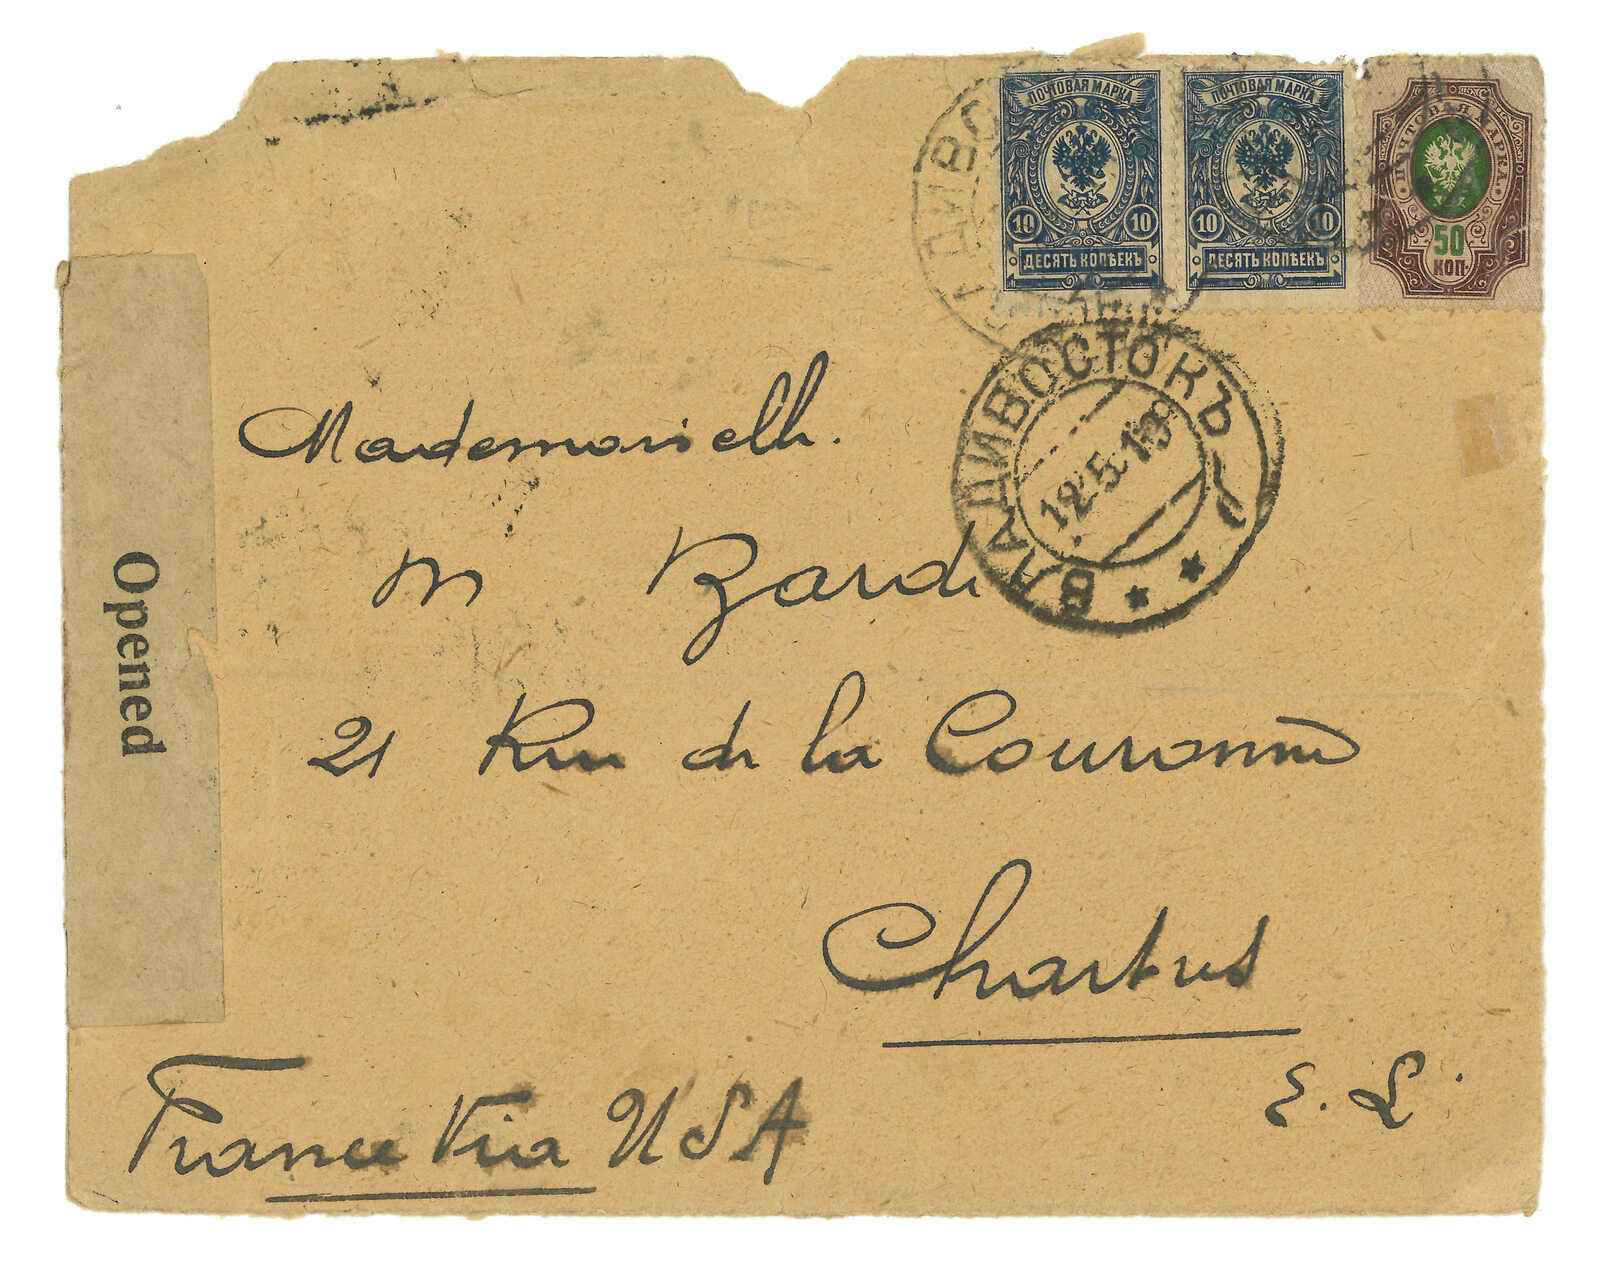 ПОЧТОВАЯ МАРКА
10 10
ДЕСЯТЬ КОПѢЕКЪ
ПОЧТОВАЯ МАРКА
10 10
ДЕСЯТЬ КОПѢЕКЪ
ПОЧТОВАЯ МАРКА
50
КОП.
ВЛАДИВОСТОКЪ
12.5.19
Opened
Mademoiselle.
M Bardi
21 Rue de la Couronne
Chartres
E. L.
France Via USA